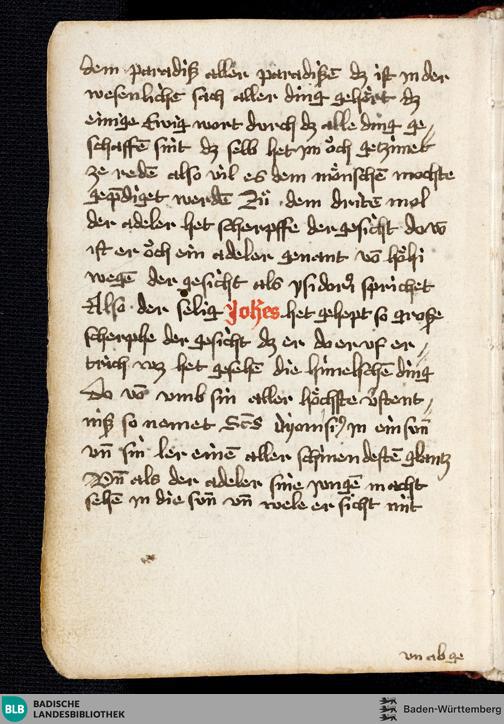 dem paradiß aller paradißē dz ist in der
wesenlichē sach aller ding gehört dz
einige Ewig wort durch dz alle ding ge⸗
schaffē sint dz selb het in öch getzimet
ze redē also vil es dem mönschē mochte
geprediget werdē Zů dem dritē mol
der adeler het scherpffe der gesicht do vō
ist er öch ein adeler genant vō höhi
wegē der gesicht als ysidorꝰ sprichet
Also der selig Johēs het gehept so große
scherphe der gesicht dz er do er vf er⸗
trich waz het gesehē die himelschē ding
Do vō vmb sin aller höchste v̈stent⸗
niß so nemet Sct̄s dyonisiꝰ in ein sūn
vn̄ sin ler einē aller schinendestē glantz
Vn̄ als der adeler sine jungē macht
sehē in die sūn vn̄ wele er sicht mit
vn ab ge
BLB BADISCHE
LANDESBIBLIOTHEK
Baden-Württemberg